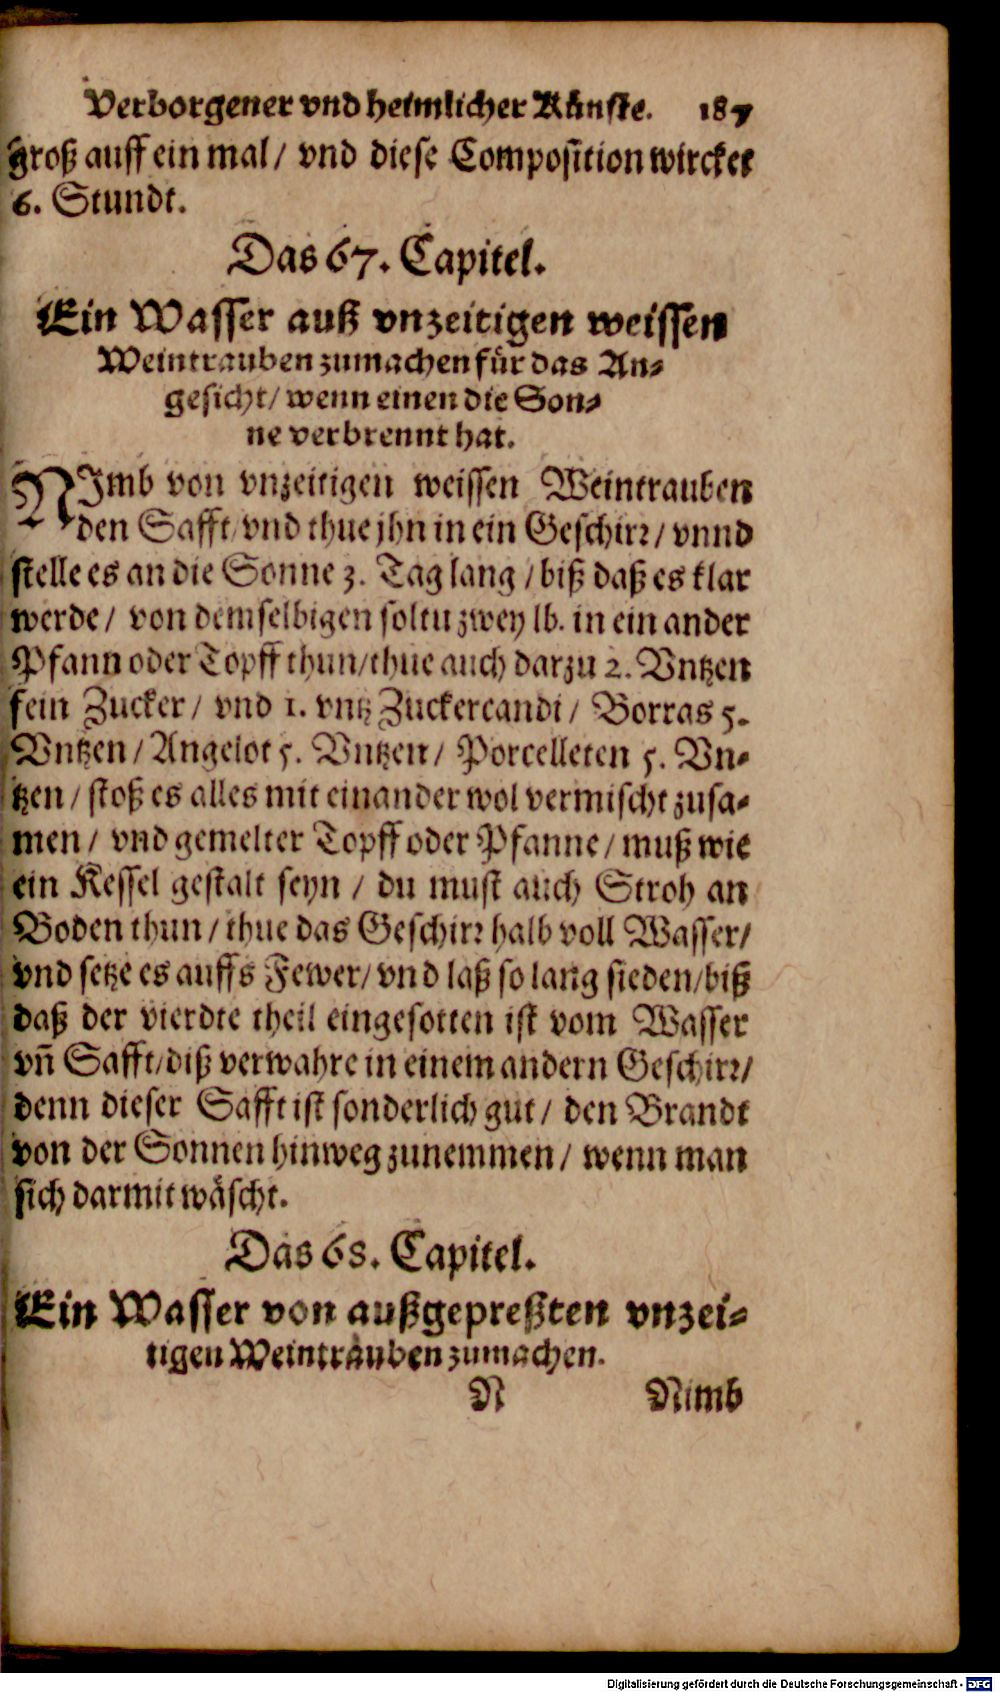 Verborgener vnd heimlicher Künste. 187
groß auff ein mal / vnd diese Composition wircket
6. Stundt.
Das 67. Capitel.
Ein Wasser auß vnzeitigen weissen
Weintrauben zumachen für das An-
gesicht / wenn einen die Son-
ne verbrennt hat.
NImb von vnzeitigen weissen Weintrauben
den Safft / vnd thue jhn in ein Geschirr / vnnd
stelle es an die Sonne 3. Tag lang / biß daß es klar
werde / von demselbigen soltu zwey lb. in ein ander
Pfann oder Topff thun / thue auch darzu 2. Vntzen
fein Zucker / vnd 1. vntz Zuckercandi / Borras 5.
Vntzen / Angelot 5. Vntzen / Porcelleten 5. Vn-
tzen / stoß es alles mit einander wol vermischt zusa-
men / vnd gemelter Topff oder Pfanne / muß wie
ein Kessel gestalt seyn / du must auch Stroh an
Boden thun / thue das Geschirr halb voll Wasser /
vnd setze es auffs Fewer / vnd laß so lang sieden / biß
daß der vierdte theil eingesotten ist vom Wasser
vñ Safft / diß verwahre in einem andern Geschirr /
denn dieser Safft ist sonderlich gut / den Brandt
von der Sonnen hinweg zunemmen / wenn man
sich darmit wäscht.
Das 68. Capitel.
Ein Wasser von außgepreßten vnzei-
tigen Weintrauben zumachen.
N Nimb
Digitalisierung gefördert durch die Deutsche Forschungsgemeinschaft - DFG